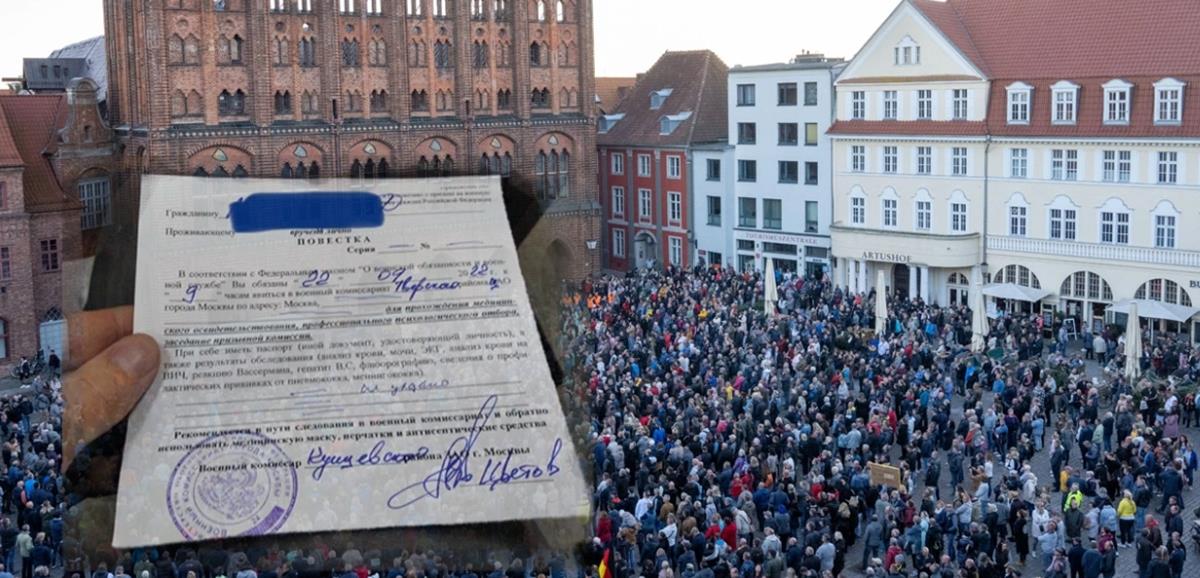 Гражданину
Российской Федерации
Проживающему
вручается лично
ПОВЕСТКА
Серия № 
В соответствии с Федеральным законом "О воинской обязанности и воен-
ной службе" Вы обязаны "22" 09 2022 г. к
"9" часам явиться в военный комиссариат Тверского района ЦАО
города Москвы по адресу: Москва,
для прохождения медицин-
ского освидетельствования, профессионального психологического отбора,
заседание призывной комиссии.
При себе иметь: паспорт (иной документ, удостоверяющий личность), а
также результаты обследования (анализ крови, мочи, ЭКГ, анализ крови на
ВИЧ, реакцию Вассермана, гепатит В,С, флюорографию, сведения о профи-
лактических прививках от пневмококка, менингококка).
Рекомендуется в пути следования в военный комиссариат и обратно
использовать медицинскую маску, перчатки и антисептические средства
Военный комиссар района ЦАО г. Москвы
Цветов
TOURISMUSZENTRALE
ARTUSHOF